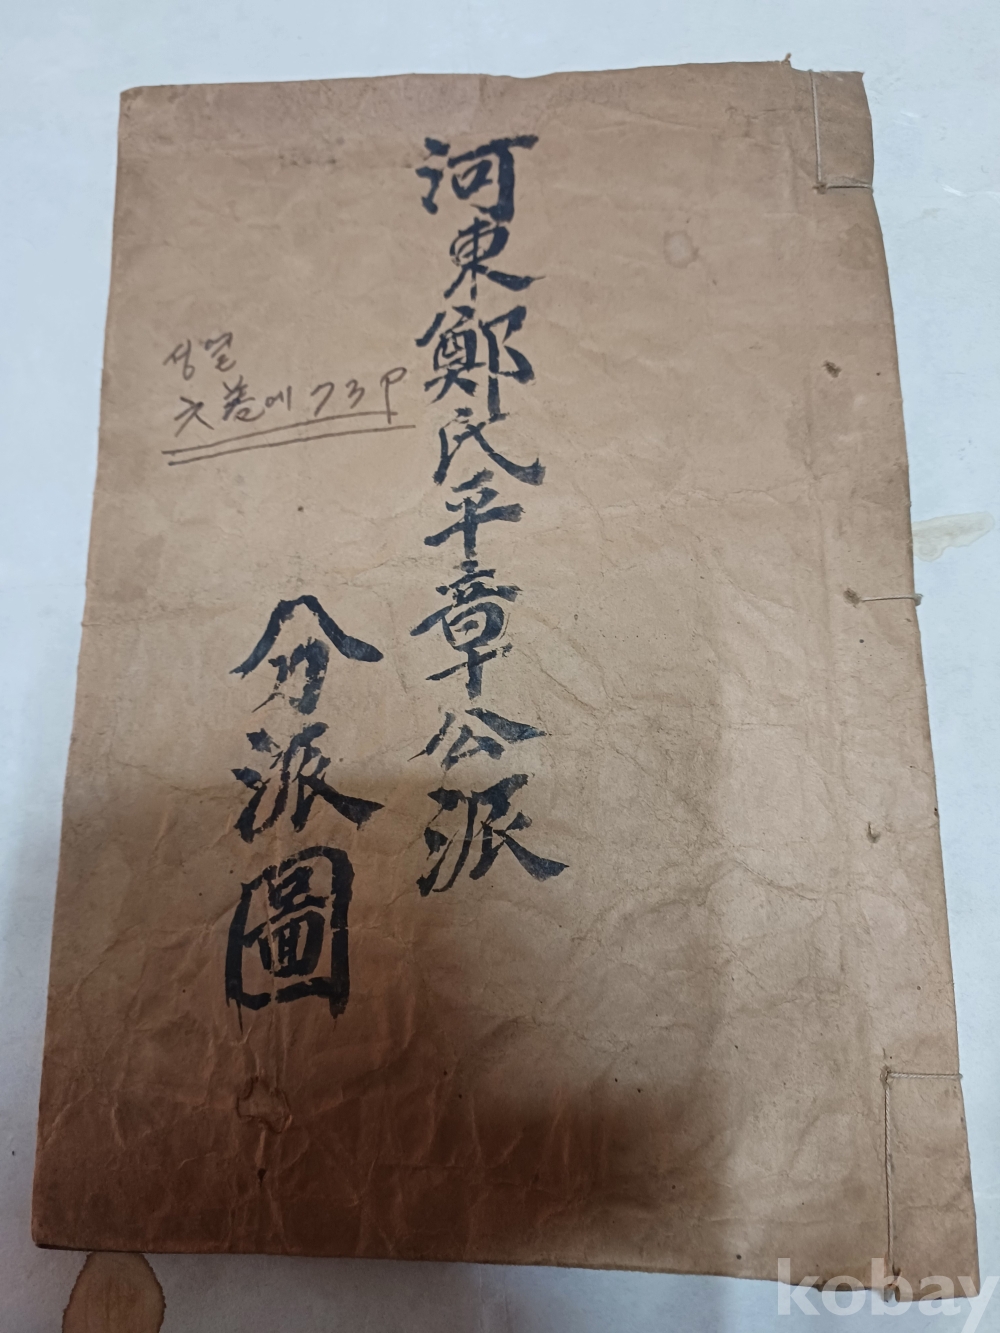 河東鄭氏平章公派
分派圖
성일
六卷에 73P
kobay